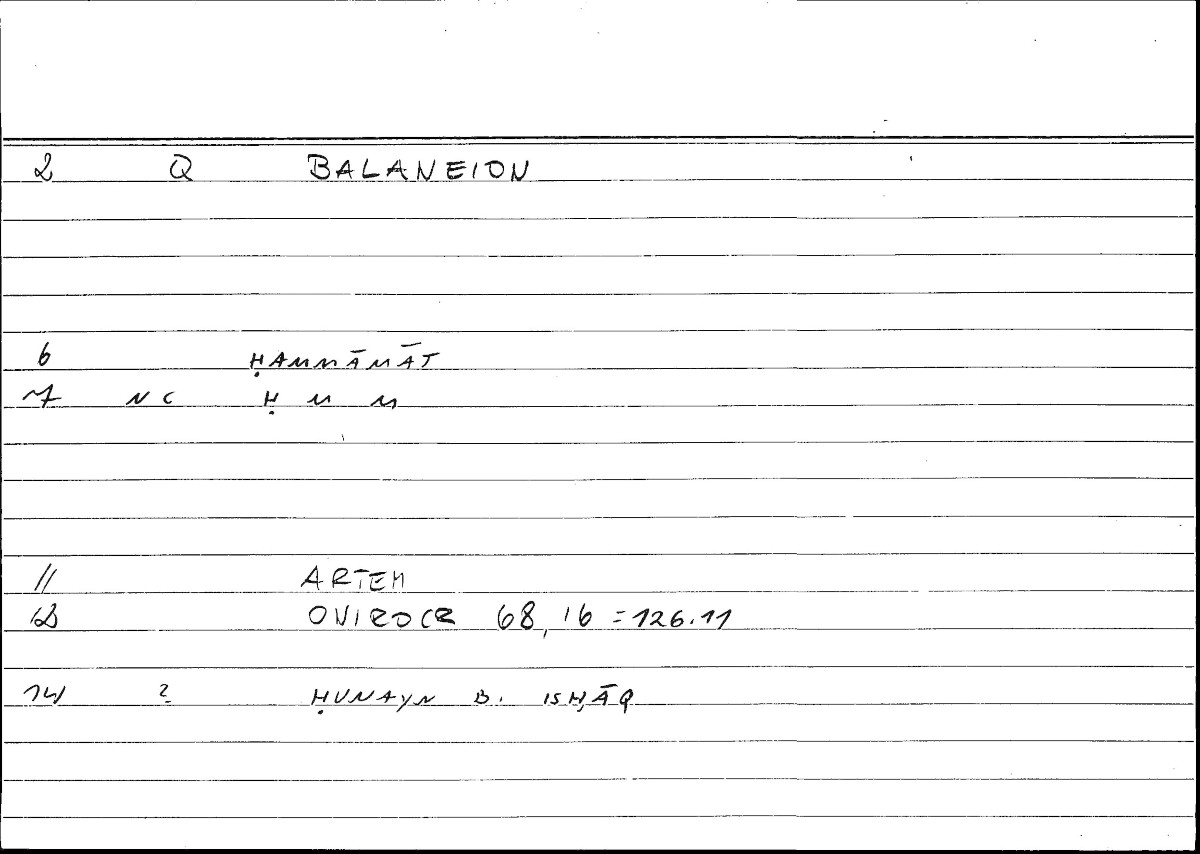 2 Q BALANEION
6 ḤAMMĀMĀT
7 NC Ḥ M M
11 ARTEM
12 ONIROCR 68,16 = 126.11
14 ? ḤUNAYN B. ISḤĀQ